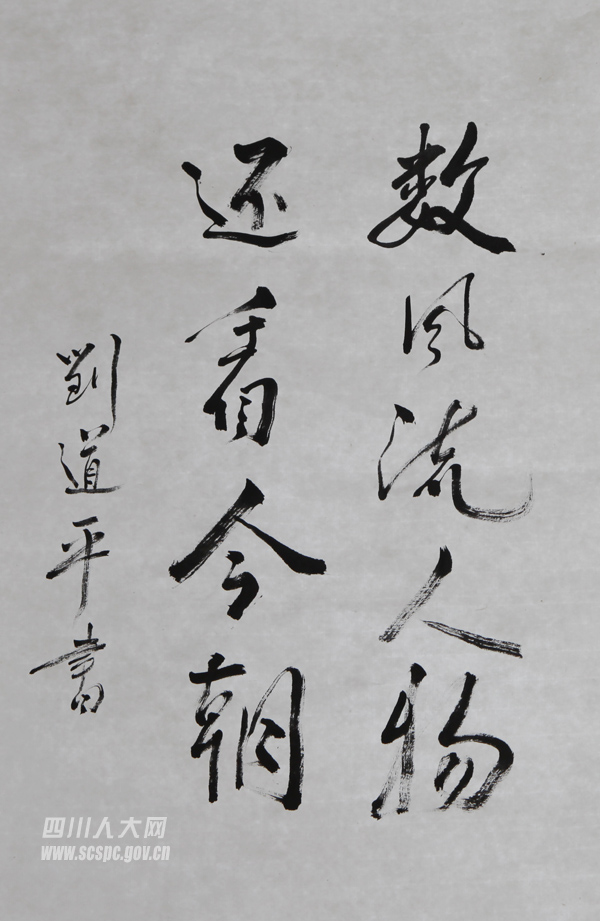 数风流人物
还看今朝
劉道平書
四川人大网
www.scspc.gov.cn